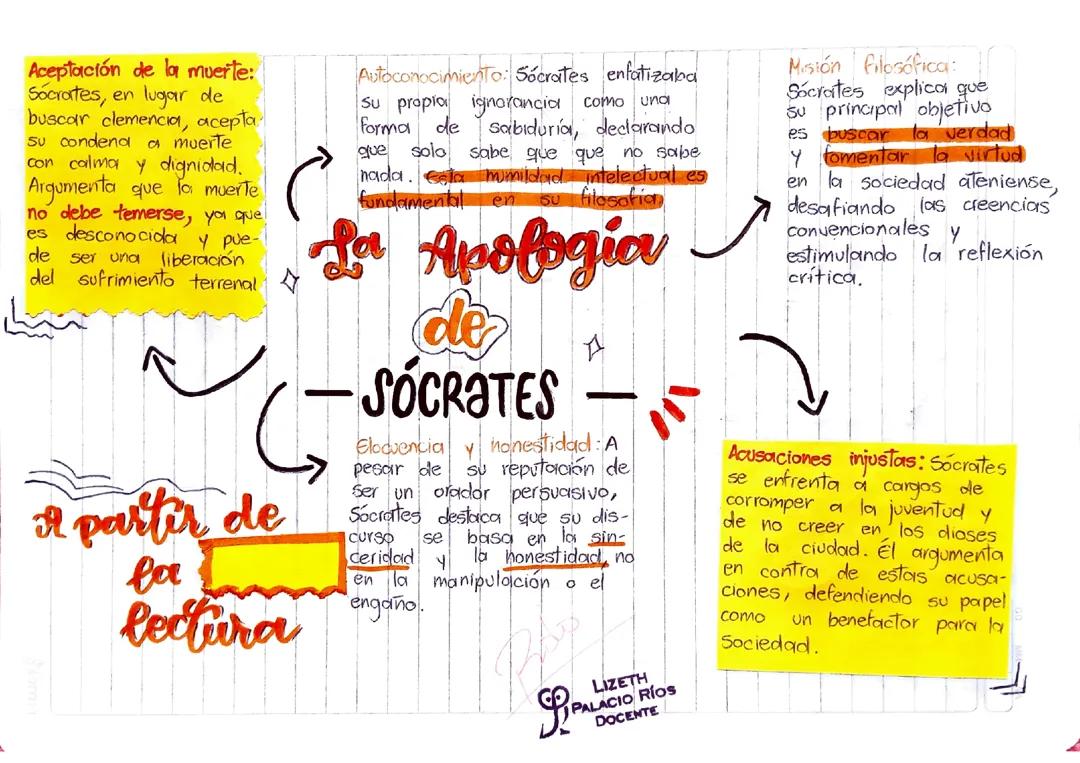 Aceptación de la muerte:
Sócrates, en lugar de
buscar clemencia, acepta
su condena a muerte
con calma y dignidad.
Argumenta que la muerte
no debe temerse, ya que
es desconocida y pue-
de ser una liberación
del sufrimiento terrenal
Autoconocimiento: Sócrates enfatizaba
su propia ignorancia como una
forma de sabiduría, declarando
que solo sabe que que no sabe
nada. Esta humildad intelectual es
fundamental en su filosofía,
Misión filosófica:
Sócrates explica que
su principal objetivo
es buscar la verdad
y fomentar la virtud
en la sociedad ateniense,
desafiando las creencias
convencionales y
estimulando la reflexión
crítica.
La Apología
de
— SÓCRATES —
Elocuencia y honestidad: A
pesar de su reputación de
ser un orador persuasivo,
Sócrates destaca que su dis-
curso se basa en la sin-
ceridad y la honestidad, no
en la manipulación o el
engaño.
Acusaciones injustas: Sócrates
se enfrenta a cargos de
corromper a la juventud y
de no creer en los dioses
de la ciudad. Él argumenta
en contra de estas acusa-
ciones, defendiendo su papel
como un benefactor para la
sociedad.
A partir de
la
lectura
LIZETH
PALACIO RÍOS
DOCENTE